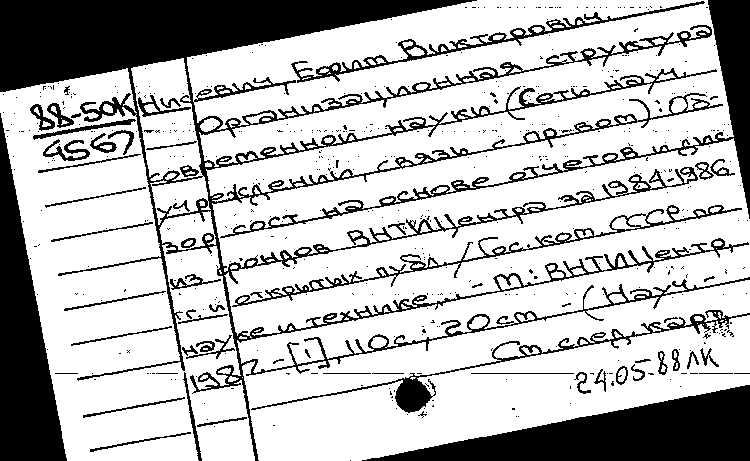 88-50К
4567
Нисевич, Ефим Викторович.
Организационная структура
современной науки: (Сеть науч.
учреждений, связь с пр-вом): Об-
зор, сост. на основе отчетов и дис.
из фондов ВНТИЦентра за 1984-1986
гг. и открытых публ. / Гос. ком. СССР по
науке и технике,.. - М.: ВНТИЦентр,
1987. - [1], 110 с.; 20 см. - (Науч. -
См. след. карт.
24.05.88 ЛК